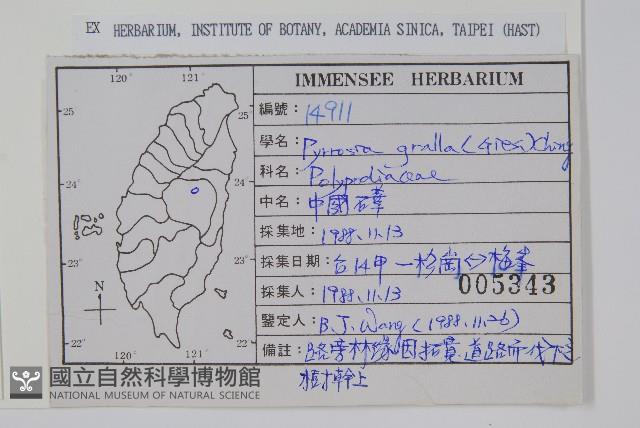 EX HERBARIUM, INSTITUTE OF BOTANY, ACADEMIA SINICA, TAIPEI (HAST)
IMMENSEE HERBARIUM
編號：14911
學名：Pyrrosia gralla (Gies.) Ching
科名：Polypodiaceae
中名：中國石葦
採集地：1988.11.13
採集日期：台14甲—杉崗↔梅峯
005343
採集人：1988.11.13
鑒定人：B.J. Wang (1988.11.26)
備註：路旁林緣，因拓寬道路所伐下之
樹幹上
120° 121°
25 25
24° 24°
23° 23°
N
22° 22
120° 121°
國立自然科學博物館
NATIONAL MUSEUM OF NATURAL SCIENCE